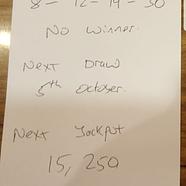 8 - 12 - 19 - 30
No Winner.
Next Draw
5th October.
Next Jackpot
15, 250